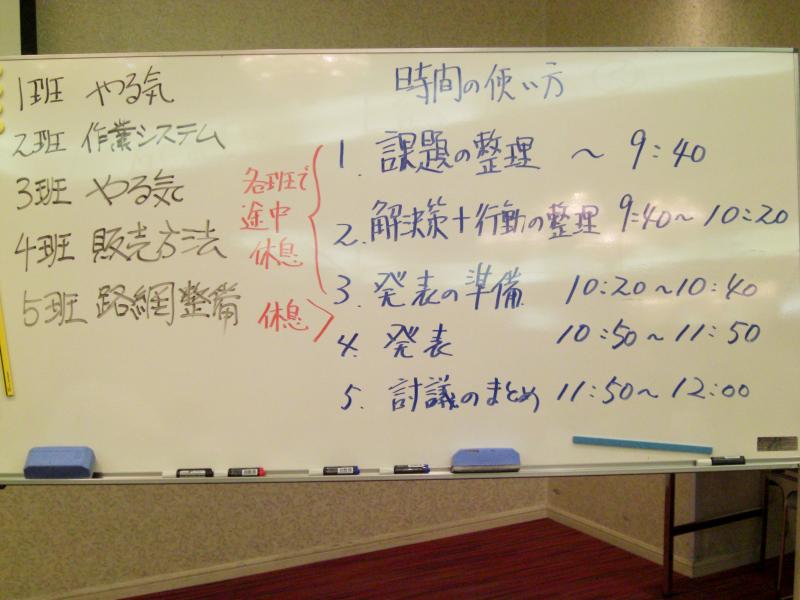 1班 やる気
2班 作業システム
3班 やる気
4班 販売方法
5班 路網整備
各班で
途中
休息
休息
時間の使い方
1. 課題の整理 ～ 9:40
2. 解決策+行動の整理 9:40～10:20
3. 発表の準備 10:20～10:40
4. 発表 10:50～11:50
5. 討議のまとめ 11:50～12:00